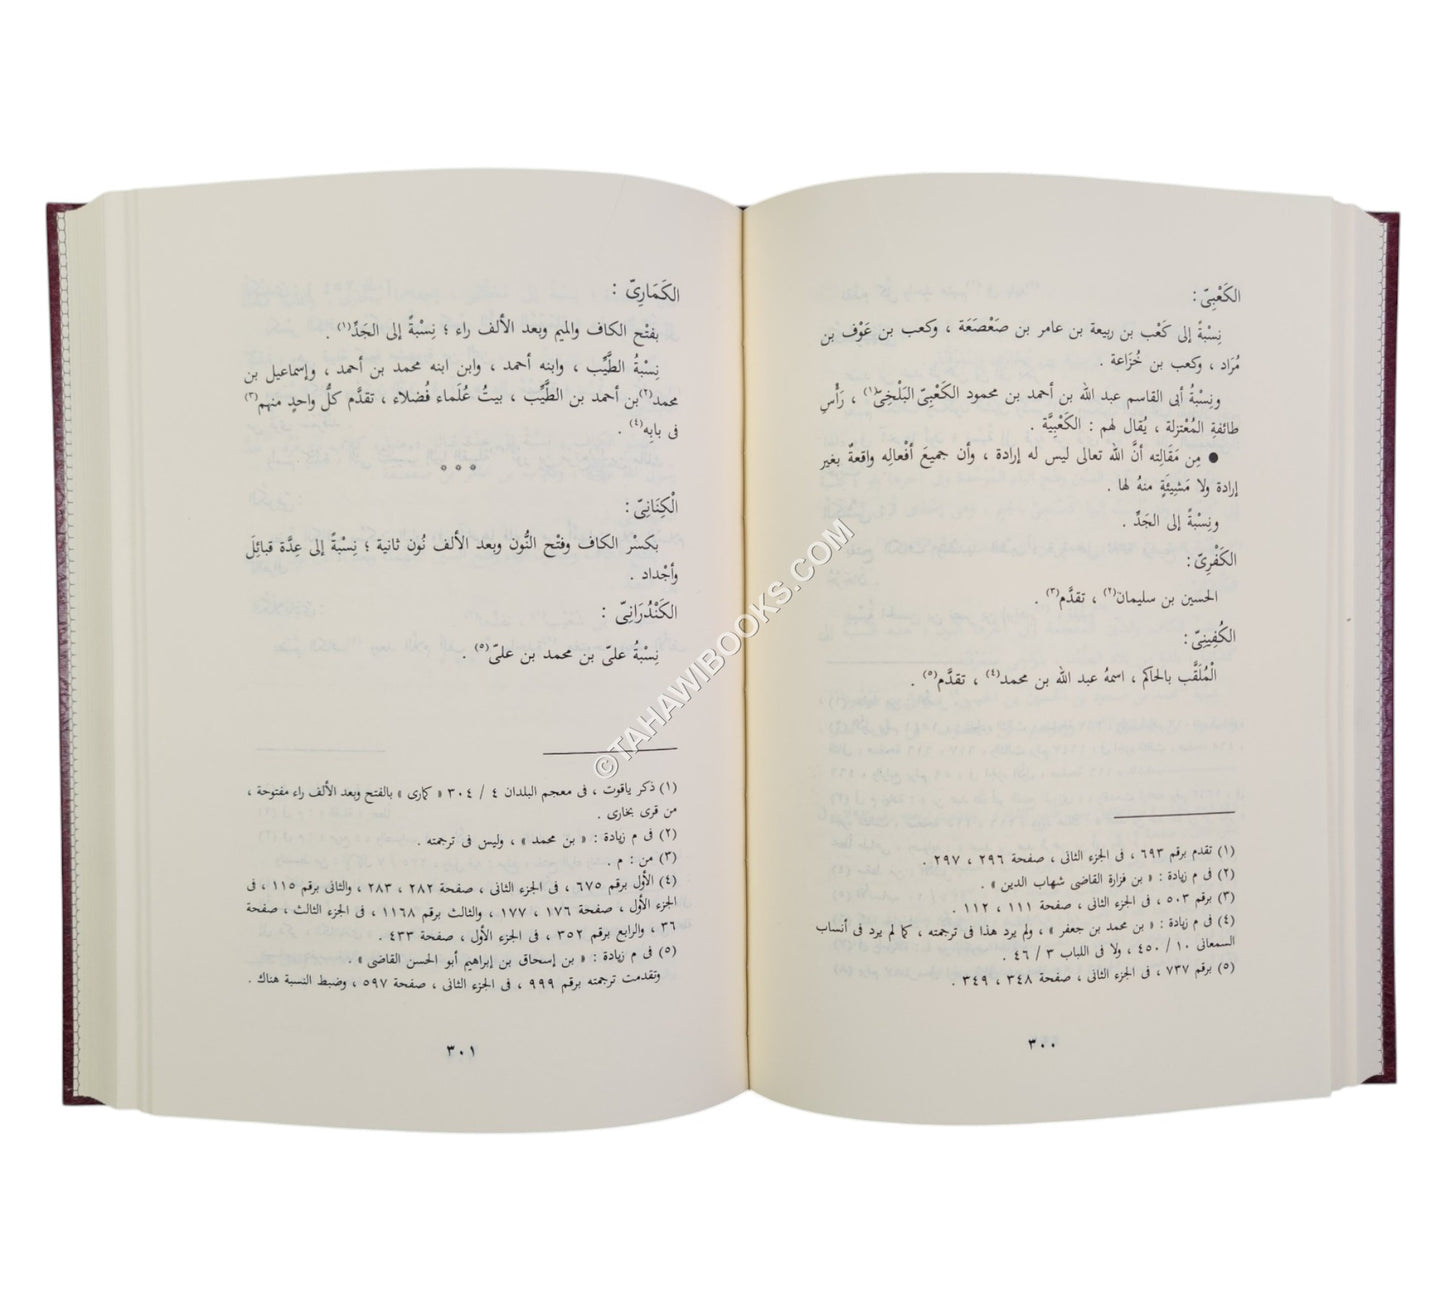 الكَعْبِىّ :
نِسْبَةً إلى كَعْب بن ربيعة بن عامر بن صَعْصَعَة ، وكعب بن عَوْف بن
مُرَاد ، وكعب بن خُزَاعة .
ونِسبةُ أبى القاسم عبد الله بن أحمد بن محمود الكَعْبِىّ البَلْخِىّ(١) ، رَأْسِ
طائفةِ المُعْتزلة ، يُقال لهم : الكَعْبِيَّة .
● مِن مَقَالِته أنَّ الله تعالى ليس له إرادة ، وأن جميعَ أفْعالِه واقعةٌ بغير
إرادة ولا مَشِيئَةٍ منهُ لها .
ونسبةً إلى الجَدِّ .
الكَفْرِىّ :
الحسين بن سليمان(٢) ، تقدَّم(٣) .
الكُفِينِىّ :
الْمُلَقَّب بالحاكم ، اسمهُ عبد الله بن محمد(٤) ، تقدَّم(٥) .
(١) تقدم برقم ٦٩٣ ، فى الجزء الثانى ، صفحة ٢٩٦ ، ٢٩٧ .
(٢) فى م زيادة : « بن فزارة القاضى شهاب الدين » .
(٣) برقم ٥٠٣ ، فى الجزء الثانى ، صفحة ١١١ ، ١١٢ .
(٤) فى م زيادة : « بن محمد بن جعفر » ، ولم يرد هذا فى ترجمته ، كما لم يرد فى أنساب
السمعانى ١٠ / ٤٥٠ ، ولا فى اللباب ٣ / ٤٦ .
(٥) برقم ٧٣٧ ، فى الجزء الثانى ، صفحة ٣٤٨ ، ٣٤٩ .
٣٠٠
الكَمَارِىّ :
بفتْح الكاف والميم وبعد الألف راء ؛ نِسْبَةً إلى الجَدِّ(١) .
نِسْبَةُ الطَّيِّب ، وابنه أحمد ، وابن ابنه محمد بن أحمد ، وإسماعيل بن
محمد(٢)بن أحمد بن الطَّيِّب ، بيتُ عُلَماء فُضلاء ، تقدَّم كلُّ واحدٍ منهم(٣)
فى بابِه(٤) .
° ° °
الْكِنَانِىّ :
بكسْر الكاف وفتْح النُّون وبعد الألف نُون ثانية ؛ نِسْبَةً إلى عِدَّة قبائِلَ
وأجْداد .
الكَنْدُرَانِىّ :
نِسْبَةُ علىّ بن محمد بن علىّ(٥) .
(١) ذكر ياقوت ، فى معجم البلدان ٤ / ٣٠٤ « كمارى » بالفتح وبعد الألف راء مفتوحة ،
من قرى بخارى .
(٢) فى م زيادة : « بن محمد » ، وليس فى ترجمته .
(٣) من : م .
(٤) الأول برقم ٦٧٥ ، فى الجزء الثانى ، صفحة ٢٨٢ ، ٢٨٣ ، والثانى برقم ١١٥ ، فى
الجزء الأول ، صفحة ١٧٦ ، ١٧٧ ، والثالث برقم ١١٦٨ ، فى الجزء الثالث ، صفحة
٣٦ ، والرابع برقم ٣٥٢ ، فى الجزء الأول ، صفحة ٤٣٣ .
(٥) فى م زيادة : « بن إسحاق بن إبراهيم أبو الحسن القاضى » .
وتقدمت ترجمته برقم ٩٩٩ ، فى الجزء الثانى ، صفحة ٥٩٧ ، وضبط النسبة هناك .
٣٠١
©TAHAWIBOOKS.COM